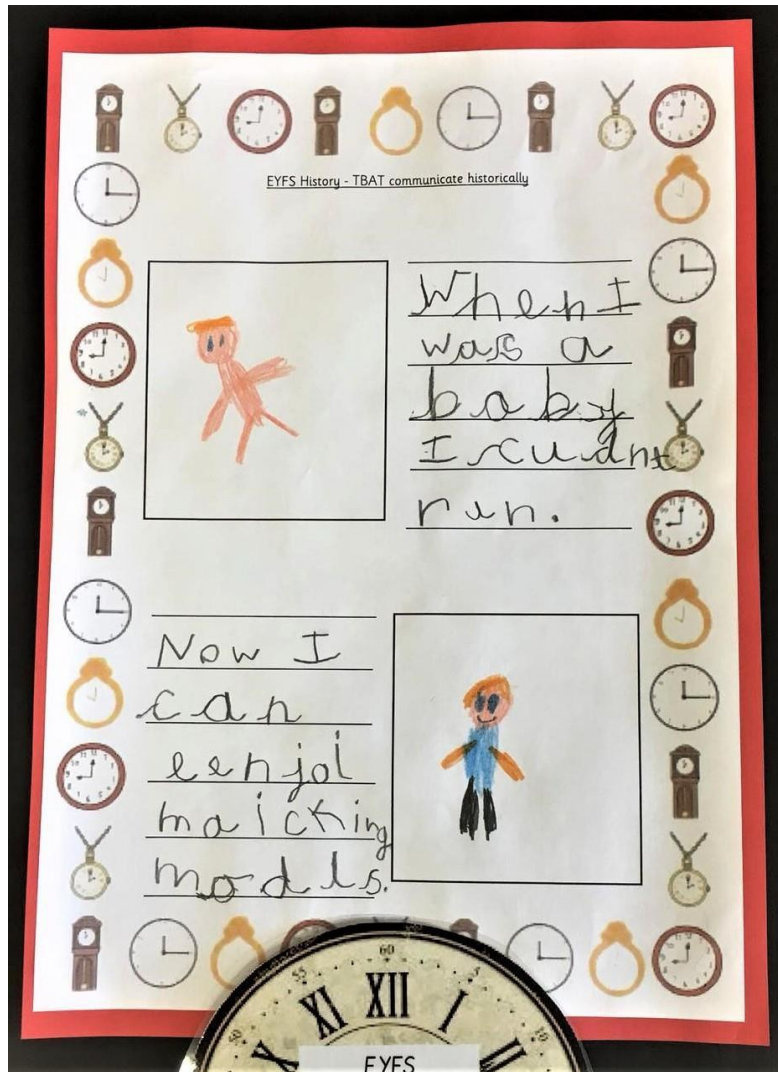 EYFS History - TBAT communicate historically
When I
was a
baby
I cudnt
run.
Now I
can
eenjoi
maicking
modls.
55
60
5
50
10
X
XI
XII
I
II
EYFS